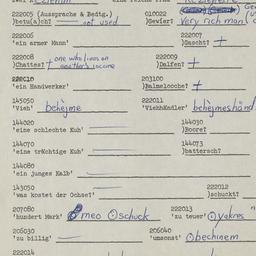 222005 (Aussprache & Bedtg.)
)betu(a)ch? not used
010022
)Gevier? Very rich man
222006
'ein armer Mann'
222007
)Dascht? +
222008
)Chattes? + one who lives on another's income
222009
)Dalfen? +
222010
'ein Handwerker'
203100
)Balmelooche? +
145050
'Vieh' behejme
222011
'Viehhändler' behejmeshänd
144020
'eine schlechte Kuh'
144030
)Boore?
144070
'eine trächtige Kuh'
144073
)battersch?
144080
'ein junges Kalb'
143050
'was kostet der Ochse?'
222012
)schuckt?
207080
'hundert Mark' meo schuck
222013
'zu teuer' yakres
206030
'zu billig'
206040
'umsonst' bechinem
222014